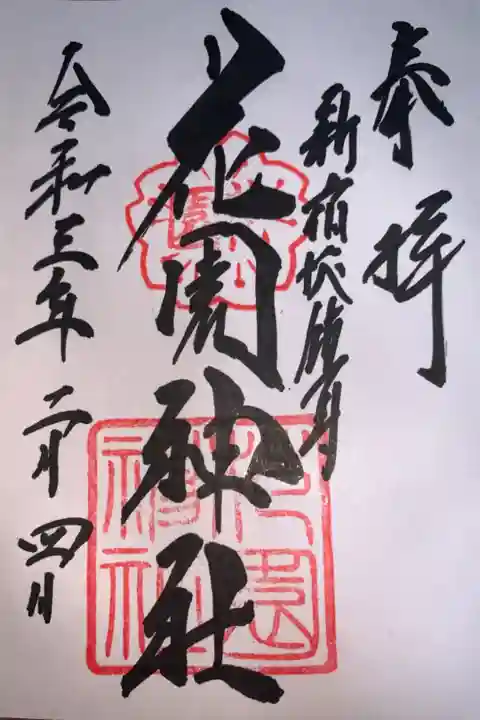 奉拝
新宿総鎮守
花園神社
令和三年二月四日
花園神社